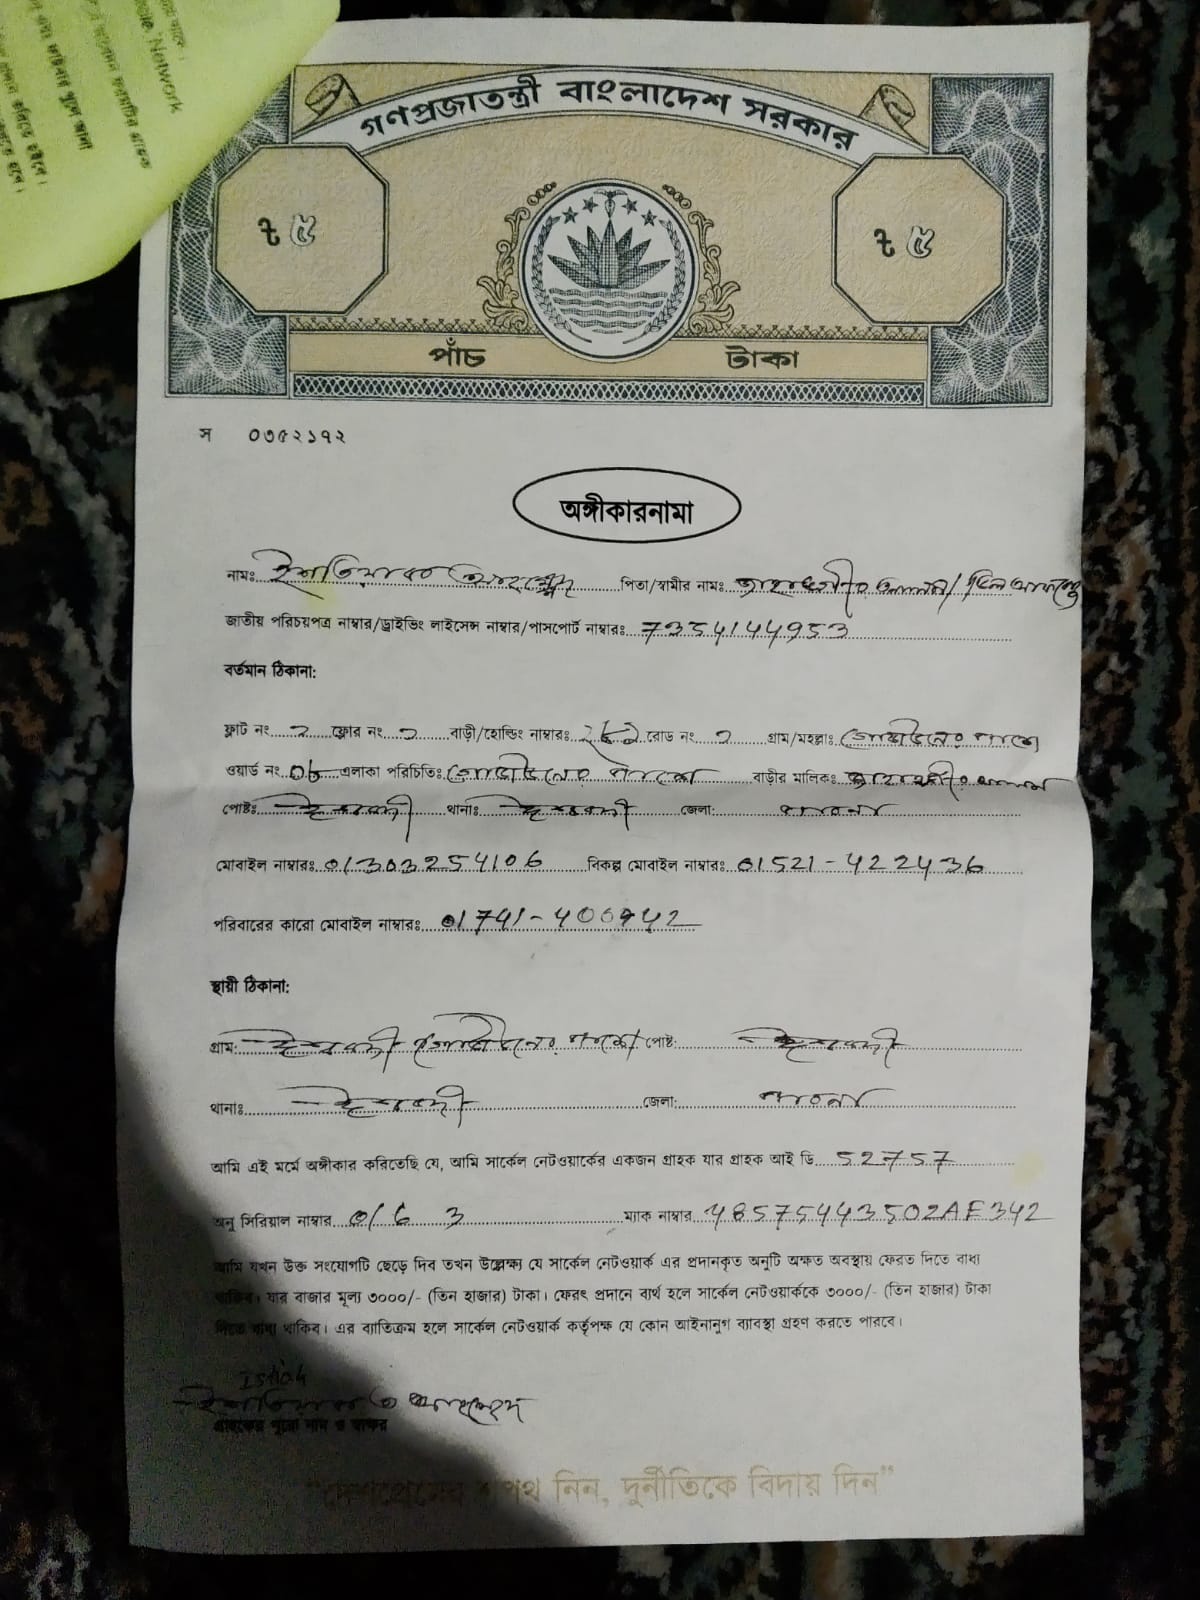 Network
গণপ্রজাতন্ত্রী বাংলাদেশ সরকার
৳ ৫ ৳ ৫
পাঁচ টাকা
স ০৩৫২১৭২
অঙ্গীকারনামা
নামঃ ইশতিয়াক আহম্মেদ পিতা/স্বামীর নামঃ জাহাঙ্গীর আলম/
জাতীয় পরিচয়পত্র নাম্বার/ড্রাইভিং লাইসেন্স নাম্বার/পাসপোর্ট নাম্বারঃ 7354144953
বর্তমান ঠিকানা:
ফ্লাট নং ২ ফ্লোর নং ১ বাড়ী/হোল্ডিং নাম্বারঃ রোড নং গ্রাম/মহল্লাঃ
ওয়ার্ড নং 06 এলাকা পরিচিতিঃ বাড়ীর মালিকঃ জাহাঙ্গীর আলম
পোষ্টঃ ঈশ্বরদী থানাঃ ঈশ্বরদী জেলা: পাবনা
মোবাইল নাম্বারঃ 01303254106 বিকল্প মোবাইল নাম্বারঃ 01521-422436
পরিবারের কারো মোবাইল নাম্বারঃ 01741-400942
স্থায়ী ঠিকানা:
গ্রাম: ঈশ্বরদী পোষ্ট: ঈশ্বরদী
থানাঃ ঈশ্বরদী জেলা: পাবনা
আমি এই মর্মে অঙ্গীকার করিতেছি যে, আমি সার্কেল নেটওয়ার্কের একজন গ্রাহক যার গ্রাহক আই ডি 52757
অনু সিরিয়াল নাম্বার 0163 ম্যাক নাম্বার 48575443502AE342
আমি যখন উক্ত সংযোগটি ছেড়ে দিব তখন উল্লেক্ষ্য যে সার্কেল নেটওয়ার্ক এর প্রদানকৃত অনুটি অক্ষত অবস্থায় ফেরত দিতে বাধ্য
থাকিব। যার বাজার মূল্য ৩০০০/- (তিন হাজার) টাকা। ফেরৎ প্রদানে ব্যর্থ হলে সার্কেল নেটওয়ার্ককে ৩০০০/- (তিন হাজার) টাকা
দিতে বাধ্য থাকিব। এর ব্যতিক্রম হলে সার্কেল নেটওয়ার্ক কর্তৃপক্ষ যে কোন আইনানুগ ব্যাবস্থা গ্রহণ করতে পারবে।
Istiak
ইশতিয়াক আহম্মেদ
গ্রাহকের পুরো নাম ও স্বাক্ষর
“দেশপ্রেমের শপথ নিন, দুর্নীতিকে বিদায় দিন”